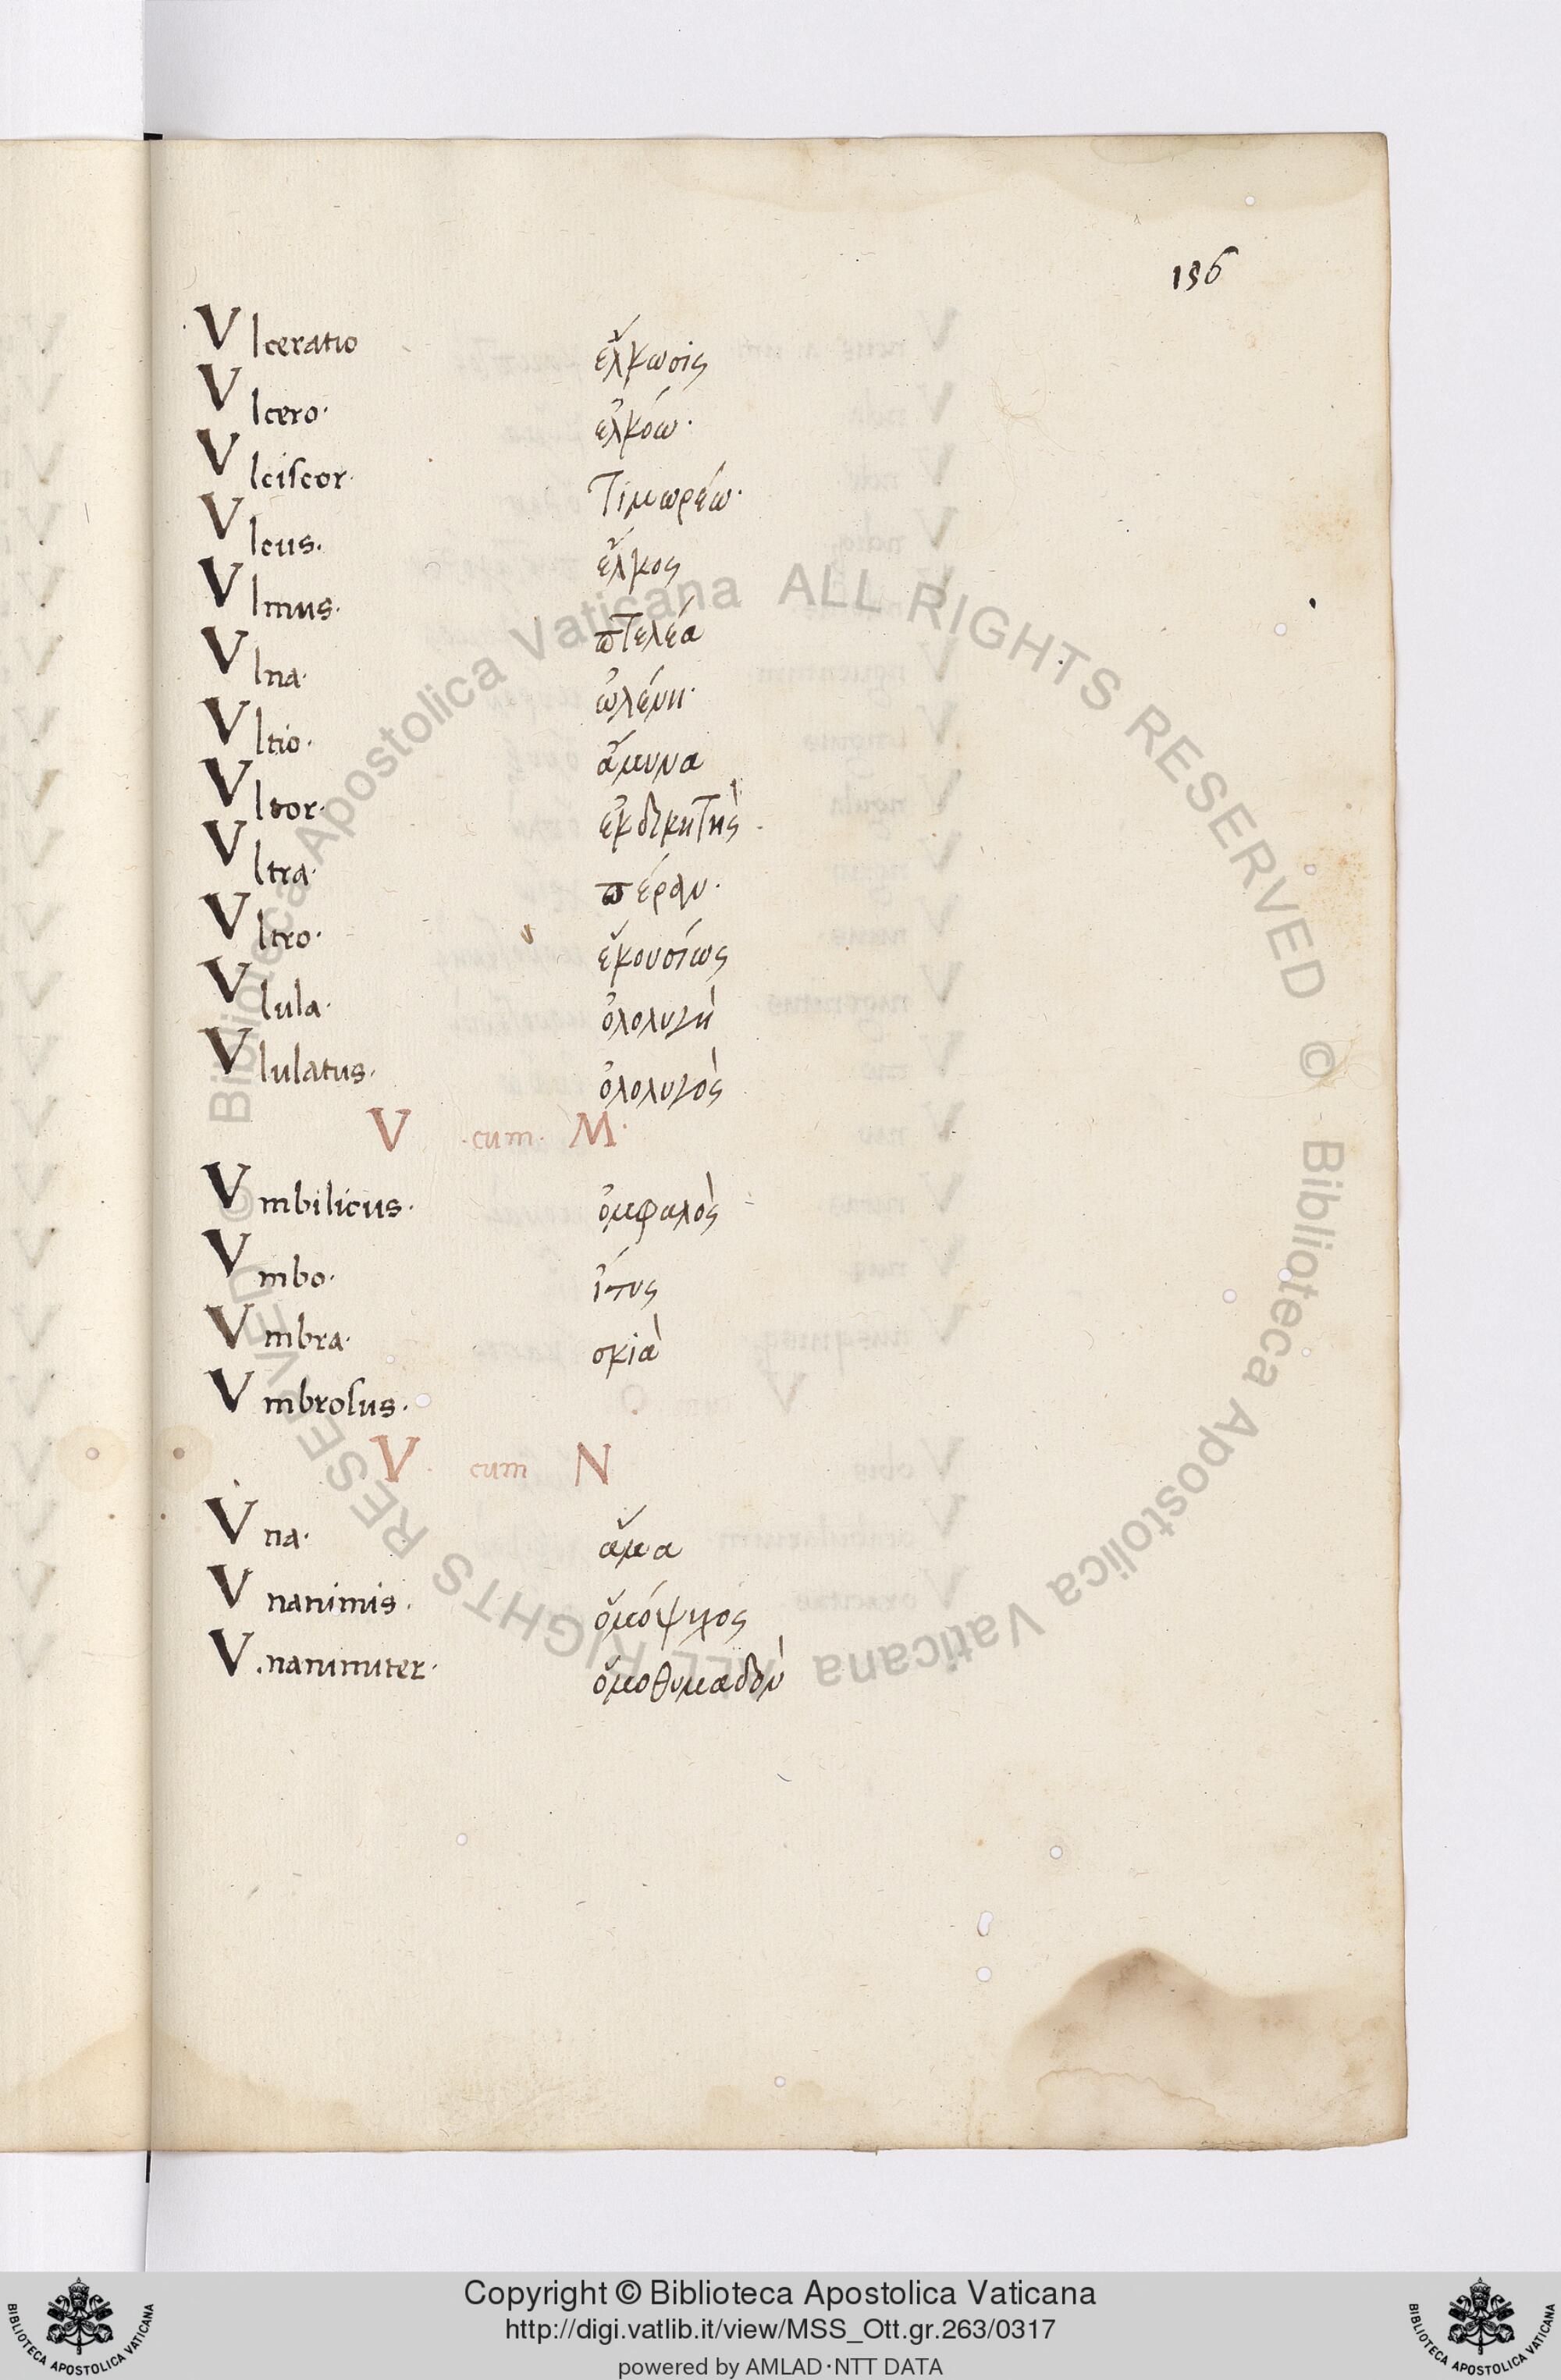 156
Vlceratio ἕλκωσις
Vlcero· ἑλκόω·
Vlciscor· Τιμωρέω·
Vlcus. ἕλκος
Vlmus· πτελέα
Vlna· ὠλένη·
Vltio· ἄμυνα
Vltor· ἐκδικητὴς
Vltra· πέραν·
Vltro· ἑκουσίως
Vlula· ὀλολυγὴ
Vlulatus· ὀλολυγὸς
V ·cum· M·
Vmbilicus· ὀμφαλὸς
Vmbo· ἴτυς
Vmbra· σκιὰ
Vmbrosus·
V cum N
Vna· ἅμα
Vnanimis· ὁμόψηχος
Vnanimiter· ὁμοθυμαδὸν
Biblioteca Apostolica Vaticana ALL RIGHTS RESERVED © Biblioteca Apostolica Vaticana ALL RIGHTS RESERVED ©
Copyright © Biblioteca Apostolica Vaticana
http://digi.vatlib.it/view/MSS_Ott.gr.263/0317
powered by AMLAD·NTT DATA
BIBLIOTECA APOSTOLICA VATICANA
BIBLIOTECA APOSTOLICA VATICANA